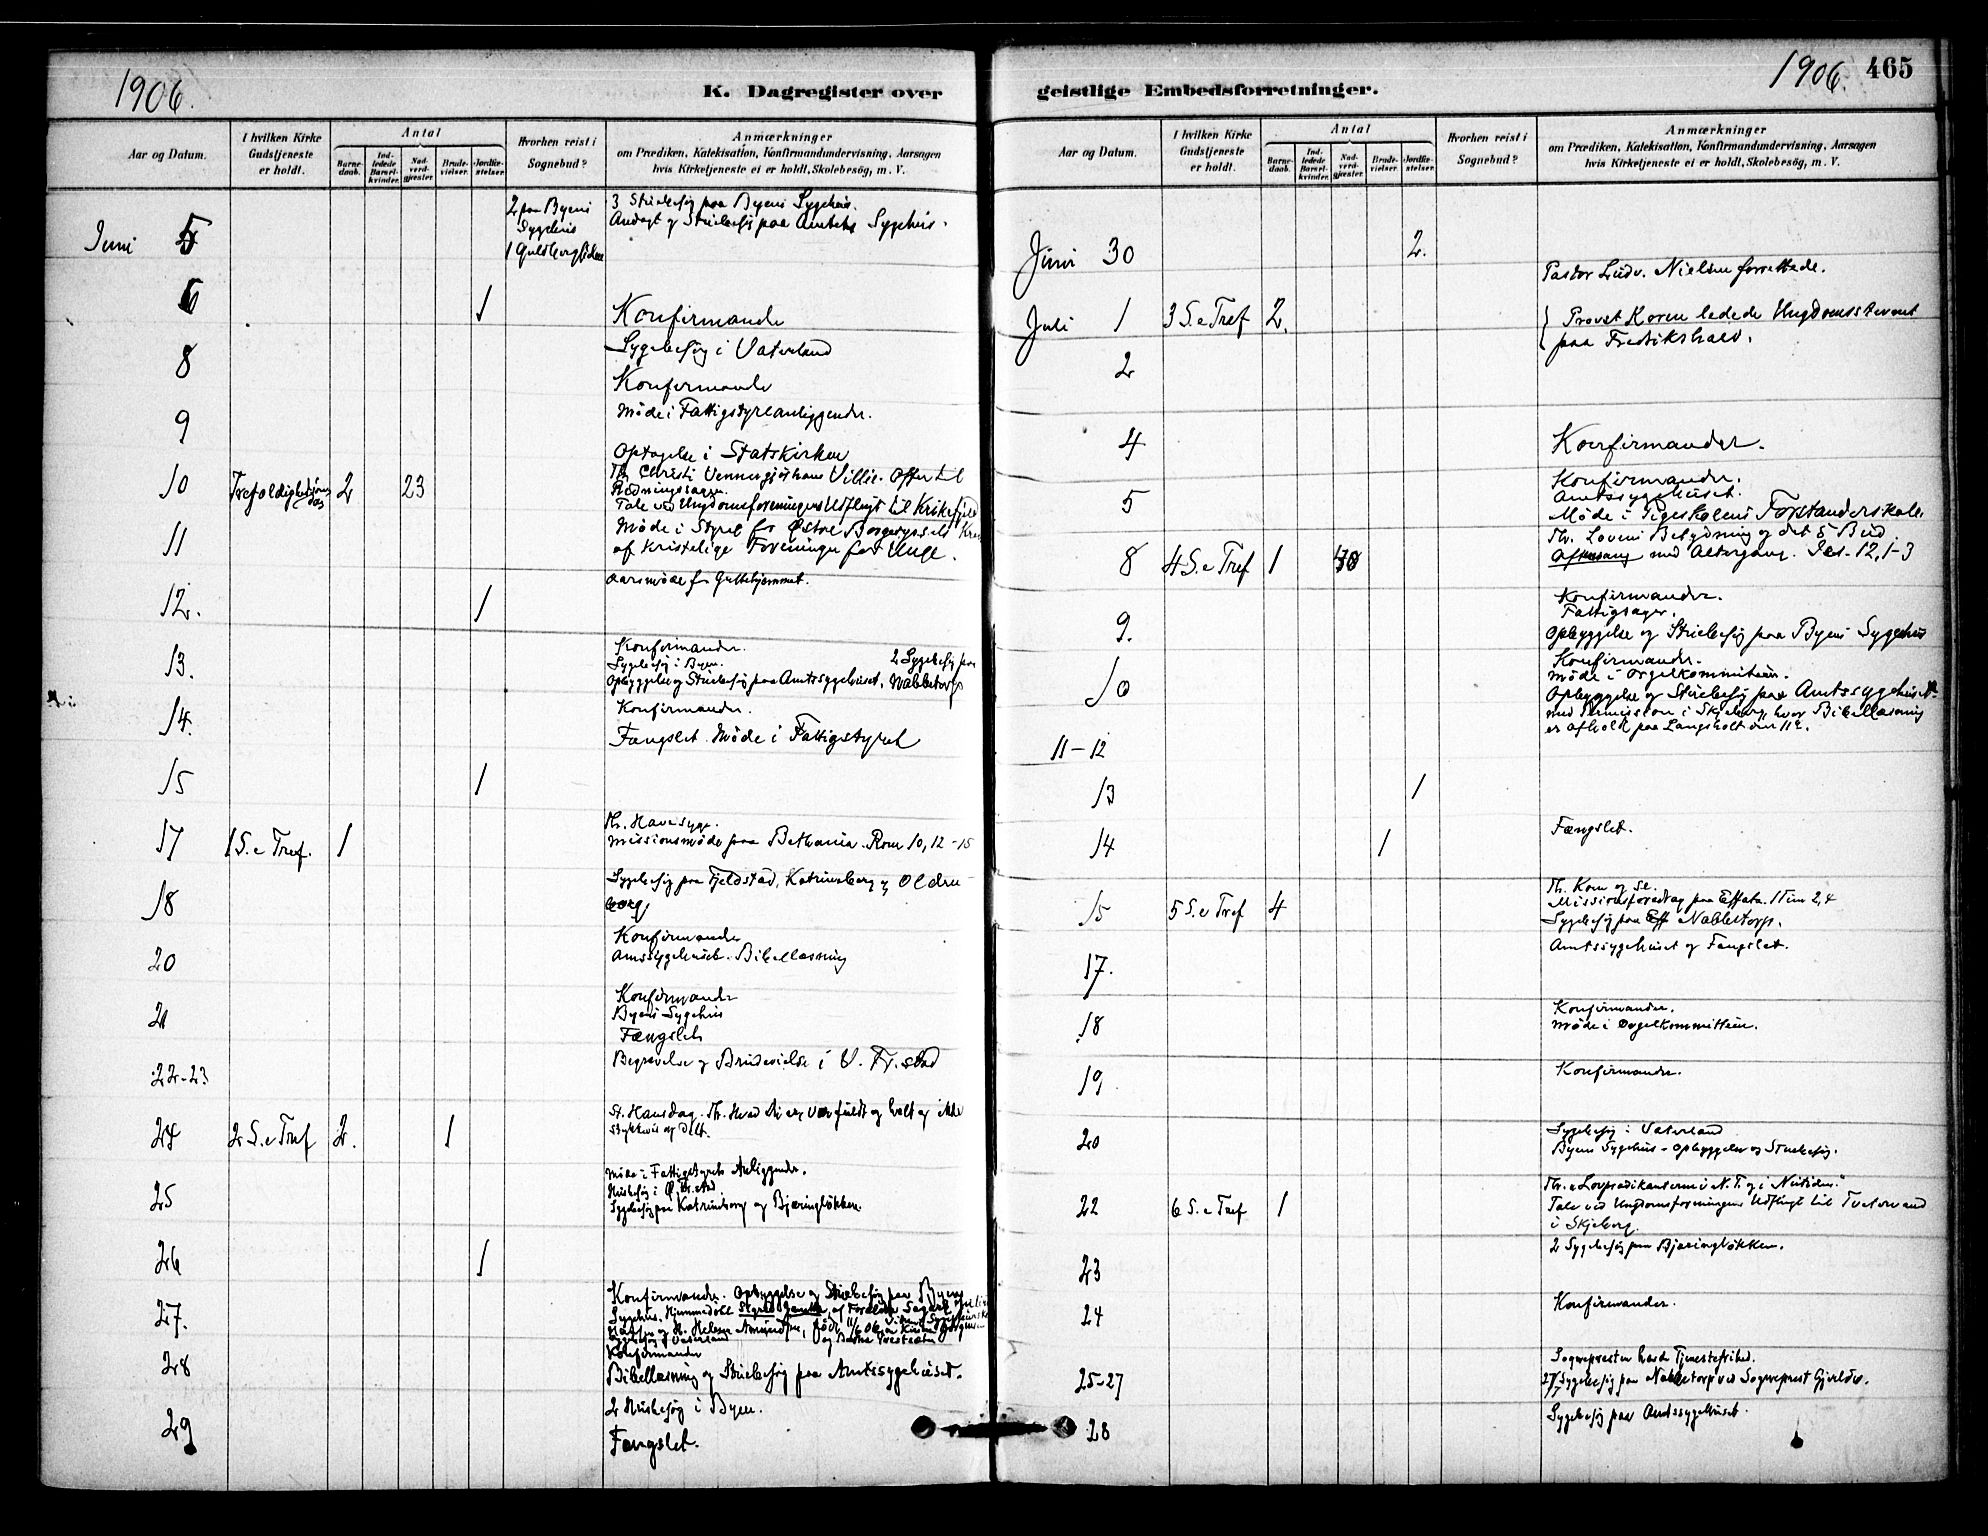 1906.
K. Dagregister over
Aar og Datum.
I hvilken Kirke
Gudstjeneste
er holdt.
Antal
Barne-
daab.
Ind-
ledede
Barsel-
kvinder.
Nad-
verd-
gjæster.
Brude-
vielser.
Jordfæ-
stelser.
Hvorhen reist i
Sognebud?
Anmærkninger
om Prædiken, Katekisation, Konfirmandundervisning, Aarsagen
hvis Kirketjeneste ei er holdt, Skolebesög, m. V.
Juni 5
2 paa Byens
Sygehus
3 Stuebesög paa Byens Sygehus.
Andagt og Stuebesög paa Amtets Sygehus.
6 1 Konfirmander
8 Sygebesög i Vaterland
Konfirmander
9 Möde i Fattigstyreanliggender.
Optagelse i Statskirken
10 Trefoldigheds 2 23
Th. Christi Offer til
Tale ved Ungdomsforeningens Udflugt til
11 Möde i Styret for Østre Borgesyssels
af Kristelige Foreninger for Unge.
12. 1 Aarsmöde for Guttehjemmet.
13. Konfirmander.
Sygebesög i Byen. 2 Sygebesög paa
Opbyggelse og Stuebesög paa Amtssygehuset. Nabbetorp
14. Konfirmander.
Fængslet. Möde i Fattigstyret
15 1
17 1 S. e Tref. 1
Th. Havesyge.
Missionsmöde paa Bethania. Rom 10, 12-15
18 Sygebesög paa Fjeldstad, Katrineborg og Olden-
borg
20 Konfirmander
Amtssygehuset. Bibellæsning
21 Konfirmander
Byens Sygehus
Fængslet
22-23 Begravelse og Brudevielse i V. Fr.stad
24 2 S. e Tref 2. 1
St. Hansdag. Th. Hvad du er, vær fuldt og helt og ikke
stykkevis og delt.
25 Möde i Fattigstyrets Anliggender.
Husbesög i Ø. Fr.stad
Sygebesög paa Katrineborg og Bjørneløkken.
26 1
27. Konfirmander. Opbyggelse og Stuebesög paa Byens
Sygehus. Hjemmedöbt
Sygebesög i Vaterland
28 Konfirmander
Bibellæsning og Stuebesög paa Amtssygehuset.
29 2 Husbesög i Byen.
Fængslet.
1906. 465
geistlige Embedsforretninger.
Aar og Datum.
I hvilken Kirke
Gudstjeneste
er holdt.
Antal
Barne-
daab.
Ind-
ledede
Barsel-
kvinder.
Nad-
verd-
gjæster.
Brude-
vielser.
Jordfæ-
stelser.
Hvorhen reist i
Sognebud?
Anmærkninger
om Prædiken, Katekisation, Konfirmandundervisning, Aarsagen
hvis Kirketjeneste ei er holdt, Skolebesög, m. V.
Juni 30 2.
Pastor Ludv. Nielsen forrettede.
Juli 1 3 S. e Tref 2.
Provst Koren ledede Ungdomsstevnet
paa Fredrikshald.
2
4 Konfirmander.
5 Konfirmander.
Amtssygehuset.
Möde i Pigeskolens Forstanderskab.
8 4 S. e Tref 1
Th. Lovens Betydning og det 5 Bud.
Aftensang med Altergang. Jes. 12, 1-3
9. Konfirmander.
Fattigsager.
Opbyggelse og Stuebesög paa Byens Sygehus
10 Konfirmander.
Möde i Orgelkommiteen.
Opbyggelse og Stuebesög paa Amtssygehuset
11-12
med Permission i Skjeberg, hvor Bibellæsning
er afholdt paa Langholt den 11te.
13 1
14 1 Fængslet.
15 5 S. e Tref 4
Th. Korn og Se.
Missionsforedrag paa Effata. 1 Tim 2,4
Sygebesög paa Nabbetorp.
17. Amtssygehuset og Fængslet.
18 Konfirmander.
Möde i Orgelkommitteen.
19 Konfirmander.
20 Sygebesög i Vaterland
Byens Sygehus - Opbyggelse og Stuebesög.
22 6 S. e Tref 1
Th. "Lovprædikanterne i N. T. og i Nutiden."
Tale ved Ungdomsforeningens Udflugt til Tveterund
i Skjeberg.
23 2 Sygebesög paa Bjørneløkken.
24 Konfirmander.
25-27 Sognepresten havde Tjenestefrihed.
27/7 Sygebesög paa Nabbetorp ved Sogneprest Gjerløv.
28 Sygebesög paa Amtssygehuset.